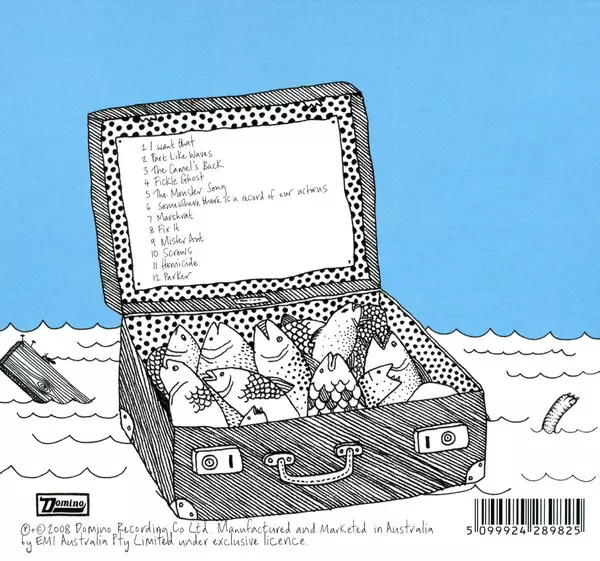 1 I want that
2 Part Like Waves
3 The Camel's Back
4 Fickle Ghost
5 The Monster Song
6 somewhere there is a record of our actions
7 Marshrat
8 Fix It
9 Mister Ant
10 Screws
11 Homicide
12 Parker
Domino
℗+© 2008 Domino Recording Co Ltd. Manufactured and Marketed in Australia
by EMI Australia Pty Limited under exclusive licence.
5 099924 289825